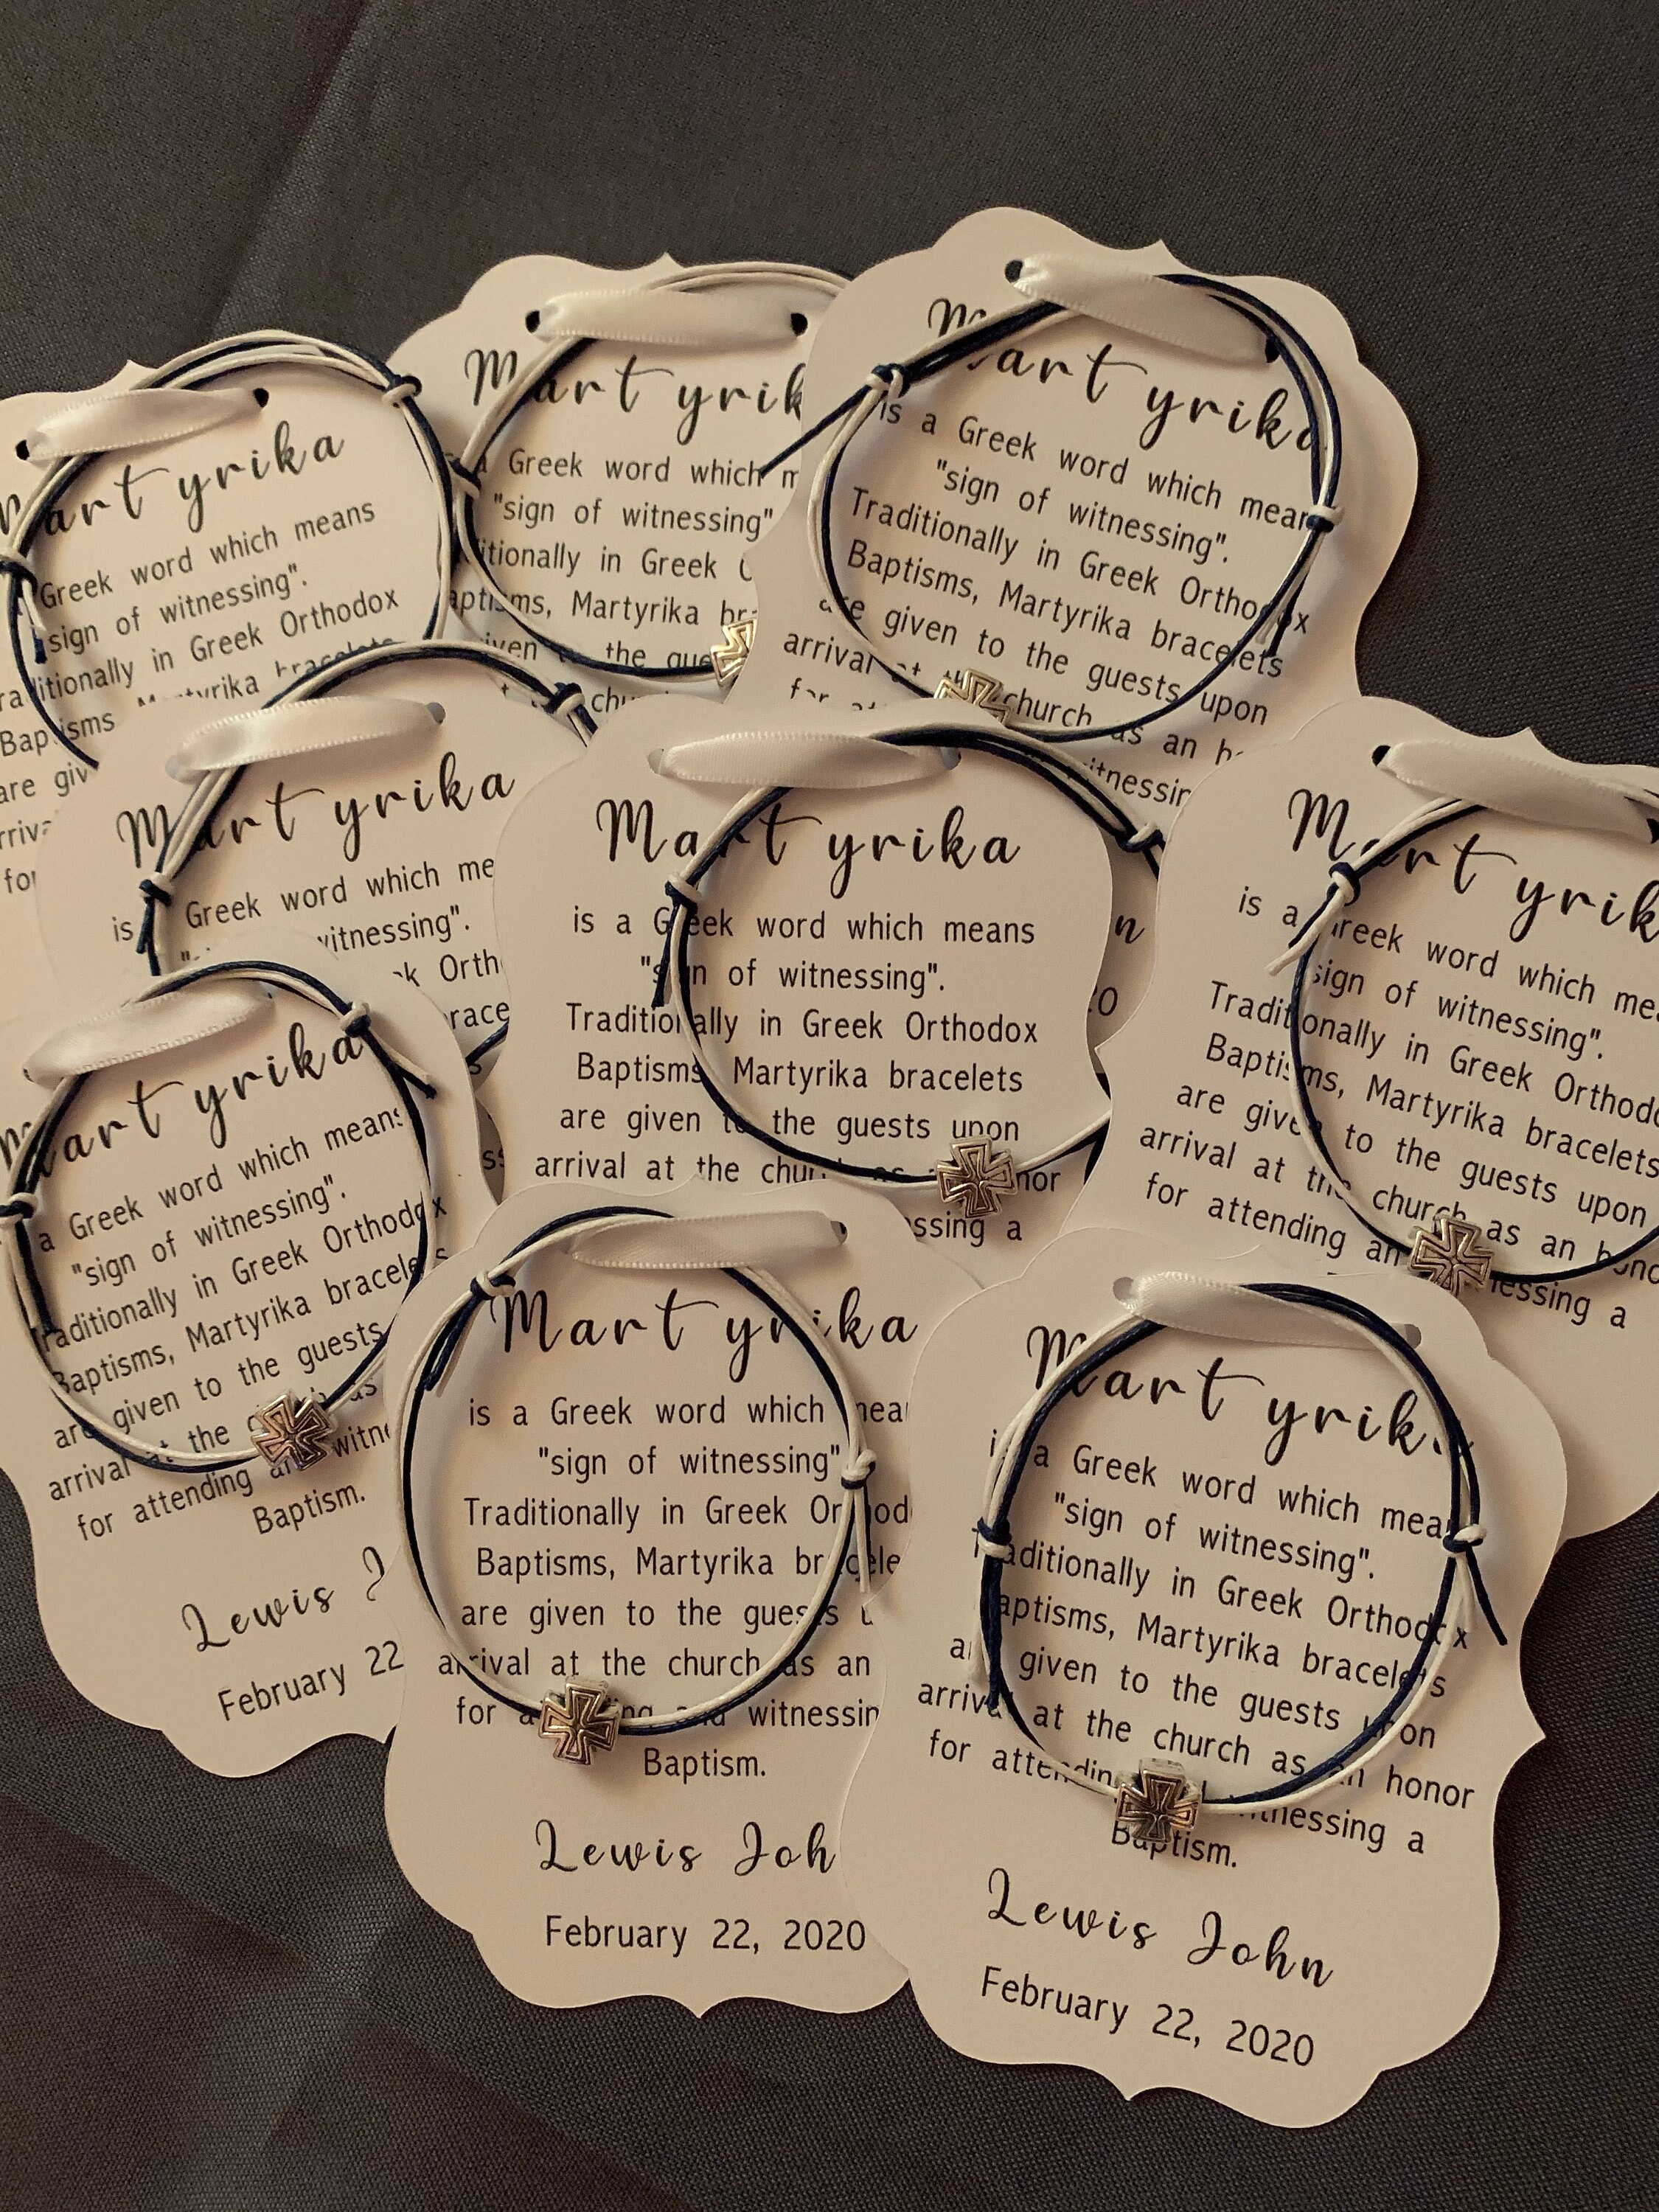 Martyrika
Greek word which means
"sign of witnessing".
Traditionally in Greek Orthodox
Baptisms Martyrika bracelets
are
for
Martyrika
Greek word which
"sign of witnessing"
in Greek
Baptisms, Martyrika
the
Martyrika
is a Greek word which means
"sign of witnessing".
Traditionally in Greek Orthodox
Baptisms, Martyrika bracelets
are given to the guests upon
arrival at the church as an
Martyrika
is Greek word which
witnessing".
Martyrika
is a Greek word which means
"sign of witnessing".
Traditionally in Greek Orthodox
Baptisms Martyrika bracelets
are given to the guests upon
arrival at the church as honor
a
Martyrika
is a Greek word which
"sign of witnessing".
Traditionally in Greek Orthodox
Baptisms, Martyrika bracelets
are given to the guests upon
arrival at the church as an honor
for attending and witnessing a
Martyrika
a Greek word which means
"sign of witnessing".
Traditionally in Greek Orthodox
Baptisms, Martyrika bracelets
are given to the guests
arrival at the church as
for attending and
Baptism.
Lewis
February 22
Martyrika
is a Greek word which
"sign of witnessing"
Traditionally in Greek
Baptisms, Martyrika
are given to the guests
arrival at the church as an
for attending and
Baptism.
Lewis John
February 22, 2020
Martyrika
is a Greek word which
"sign of witnessing".
Traditionally in Greek Orthodox
Baptisms, Martyrika bracelets
given to the guests upon
arrival at the church as an honor
for attending witnessing a
Baptism.
Lewis John
February 22, 2020